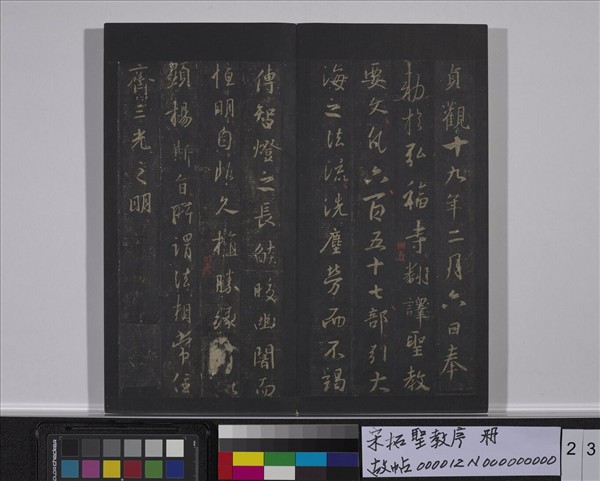 貞觀十九年二月六日奉
勅於弘福寺翻譯聖教
要文凡六百五十七部引大
海之法流洗塵勞而不竭
傳智燈之長焰皎幽闇而
恒明自非久植勝緣何以
顯揚斯旨所謂法相常住
齊三光之明
宋拓聖教序 冊
故帖000012N000000000
23